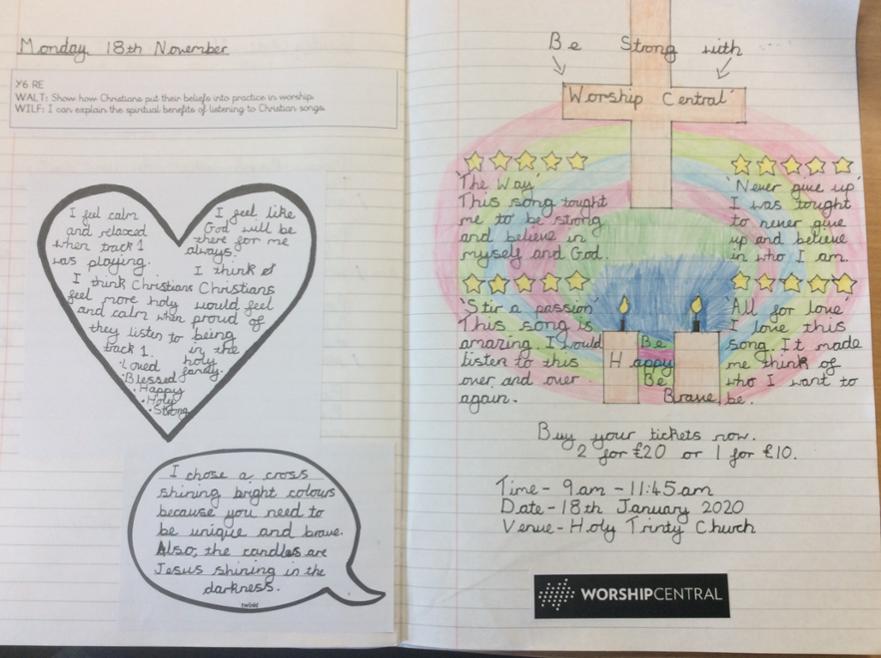 Monday 18th November
Y6 RE
WALT: Show how Christians put their beliefs into practice in worship.
WILF: I can explain the spiritual benefits of listening to Christian songs.
I feel calm
and relaxed
when track 1
was playing.
I think Christians
feel more holy
and calm when
they listen to
track 1.
I feel like
God will be
there for me
always.
I think
Christians
would feel
proud of
being
in the
holy
family.
·Loved
·Blessed
·Happy
·Holy
·Strong
I chose a cross
shining bright colours
because you need to
be unique and brave.
Also, the candles are
Jesus shining in the
darkness.
twinkl
Be Strong with
'Worship Central'
'The Way'
This song tought
me to be strong
and believe in
myself and God.
'Never give up'
I was tought
to never give
up and believe
in who I am.
'Stir a passion'
This song is
amazing. I would
listen to this
over and over
again.
'All for love'
I love this
song. It made
me think of
who I want to
be.
Be
Happy
Be
Brave
Buy your tickets now.
2 for £20 or 1 for £10.
Time- 9am - 11:45am
Date- 18th January 2020
Venue- Holy Trinty Church
WORSHIPCENTRAL